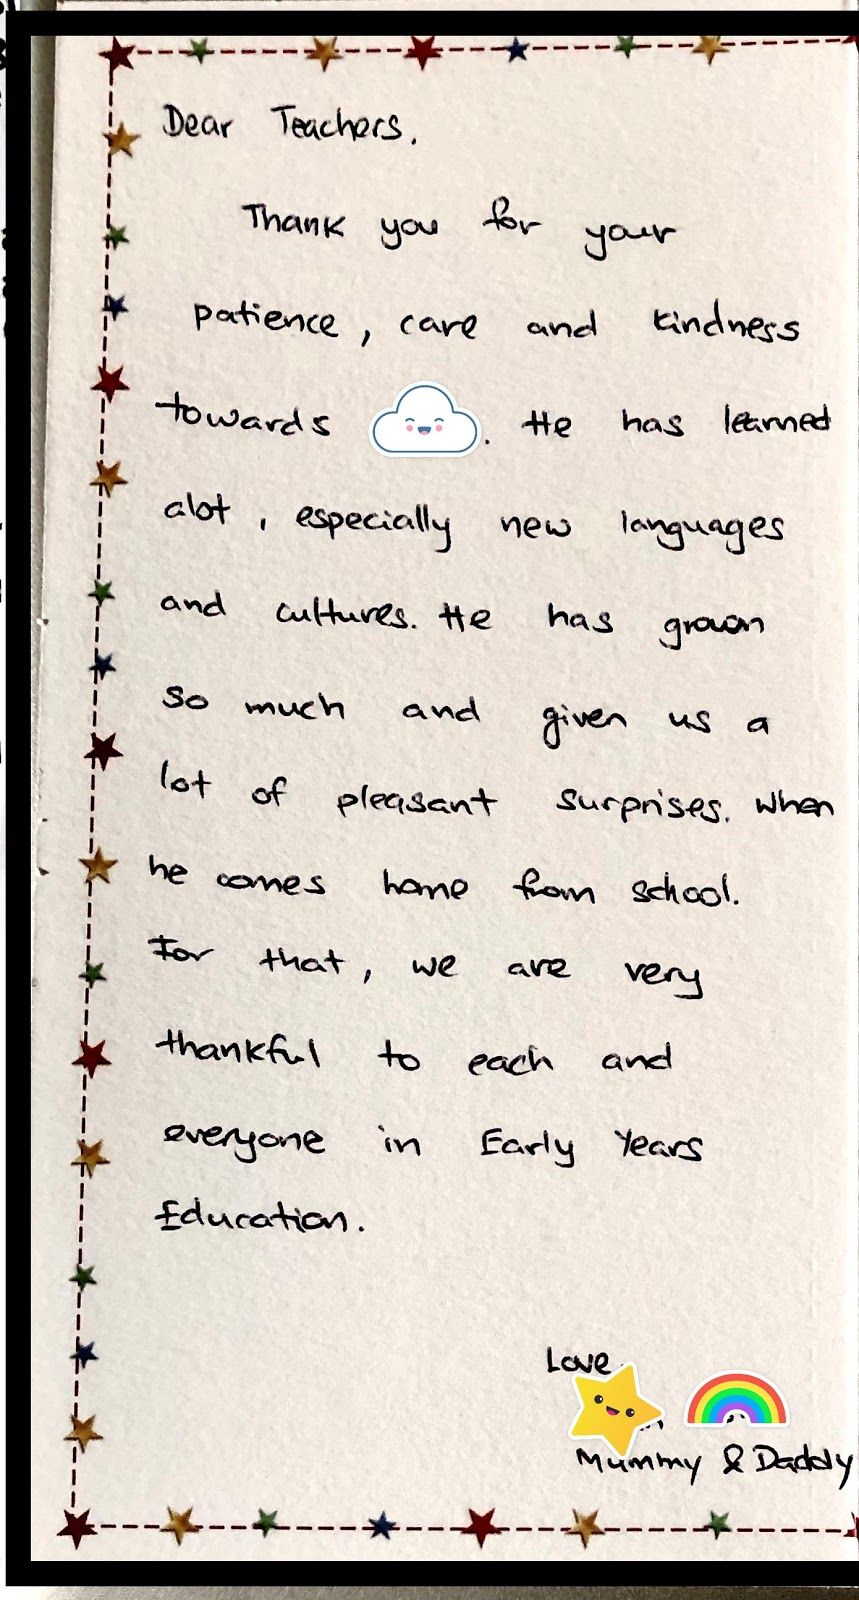 Dear Teachers,
Thank you for your
patience, care and kindness
towards . He has learned
alot, especially new languages
and cultures. He has grown
so much and given us a
lot of pleasant surprises. When
he comes home from school.
For that, we are very
thankful to each and
everyone in Early Years
Education.
Love
Mummy & Daddy